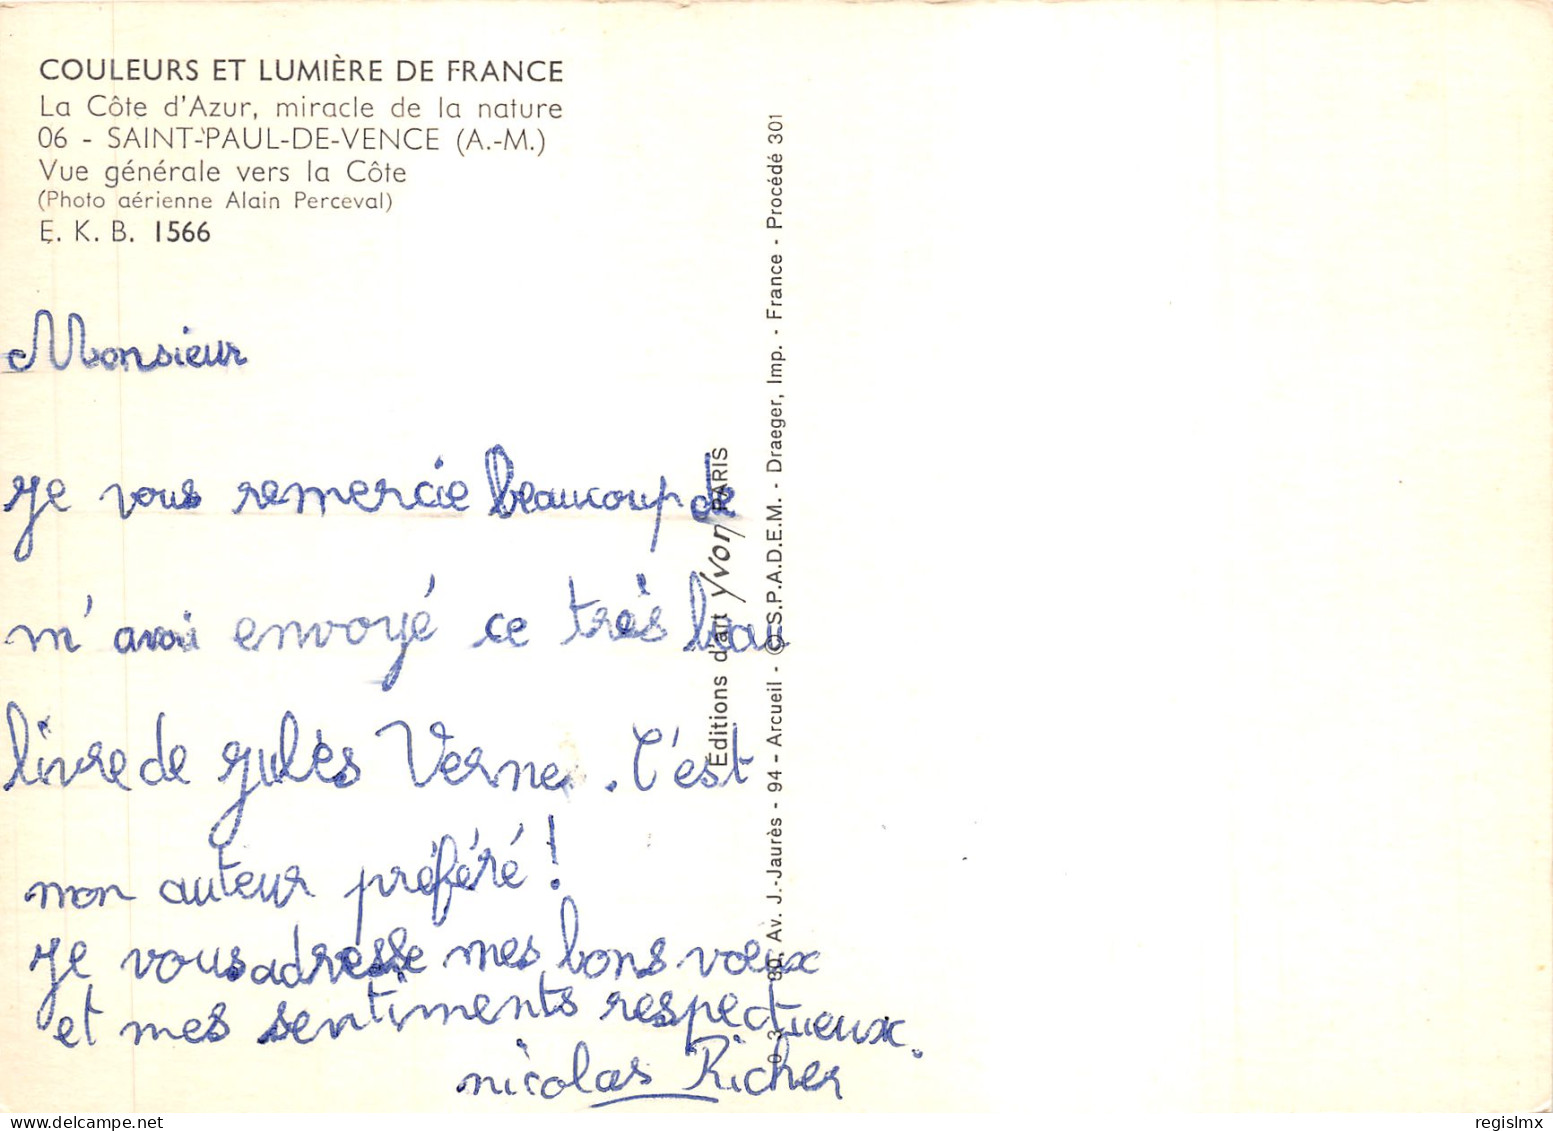 COULEURS ET LUMIÈRE DE FRANCE
La Côte d'Azur, miracle de la nature
06 - SAINT-PAUL-DE-VENCE (A.-M.)
Vue générale vers la Côte
(Photo aérienne Alain Perceval)
E. K. B. 1566
Monsieur
je vous remercie beaucoup de
m'avoi envoyé ce très beau
livre de Julès Verne. C'est
mon auteur préféré !
je vous adresse mes bons voeux
et mes sentiments respectueux.
nicolas Richer
Éditions d'art Yvon PARIS
Av. J.-Jaurès - 94 - Arcueil - © S.P.A.D.E.M. - Draeger, Imp. - France - Procédé 301
regislmx